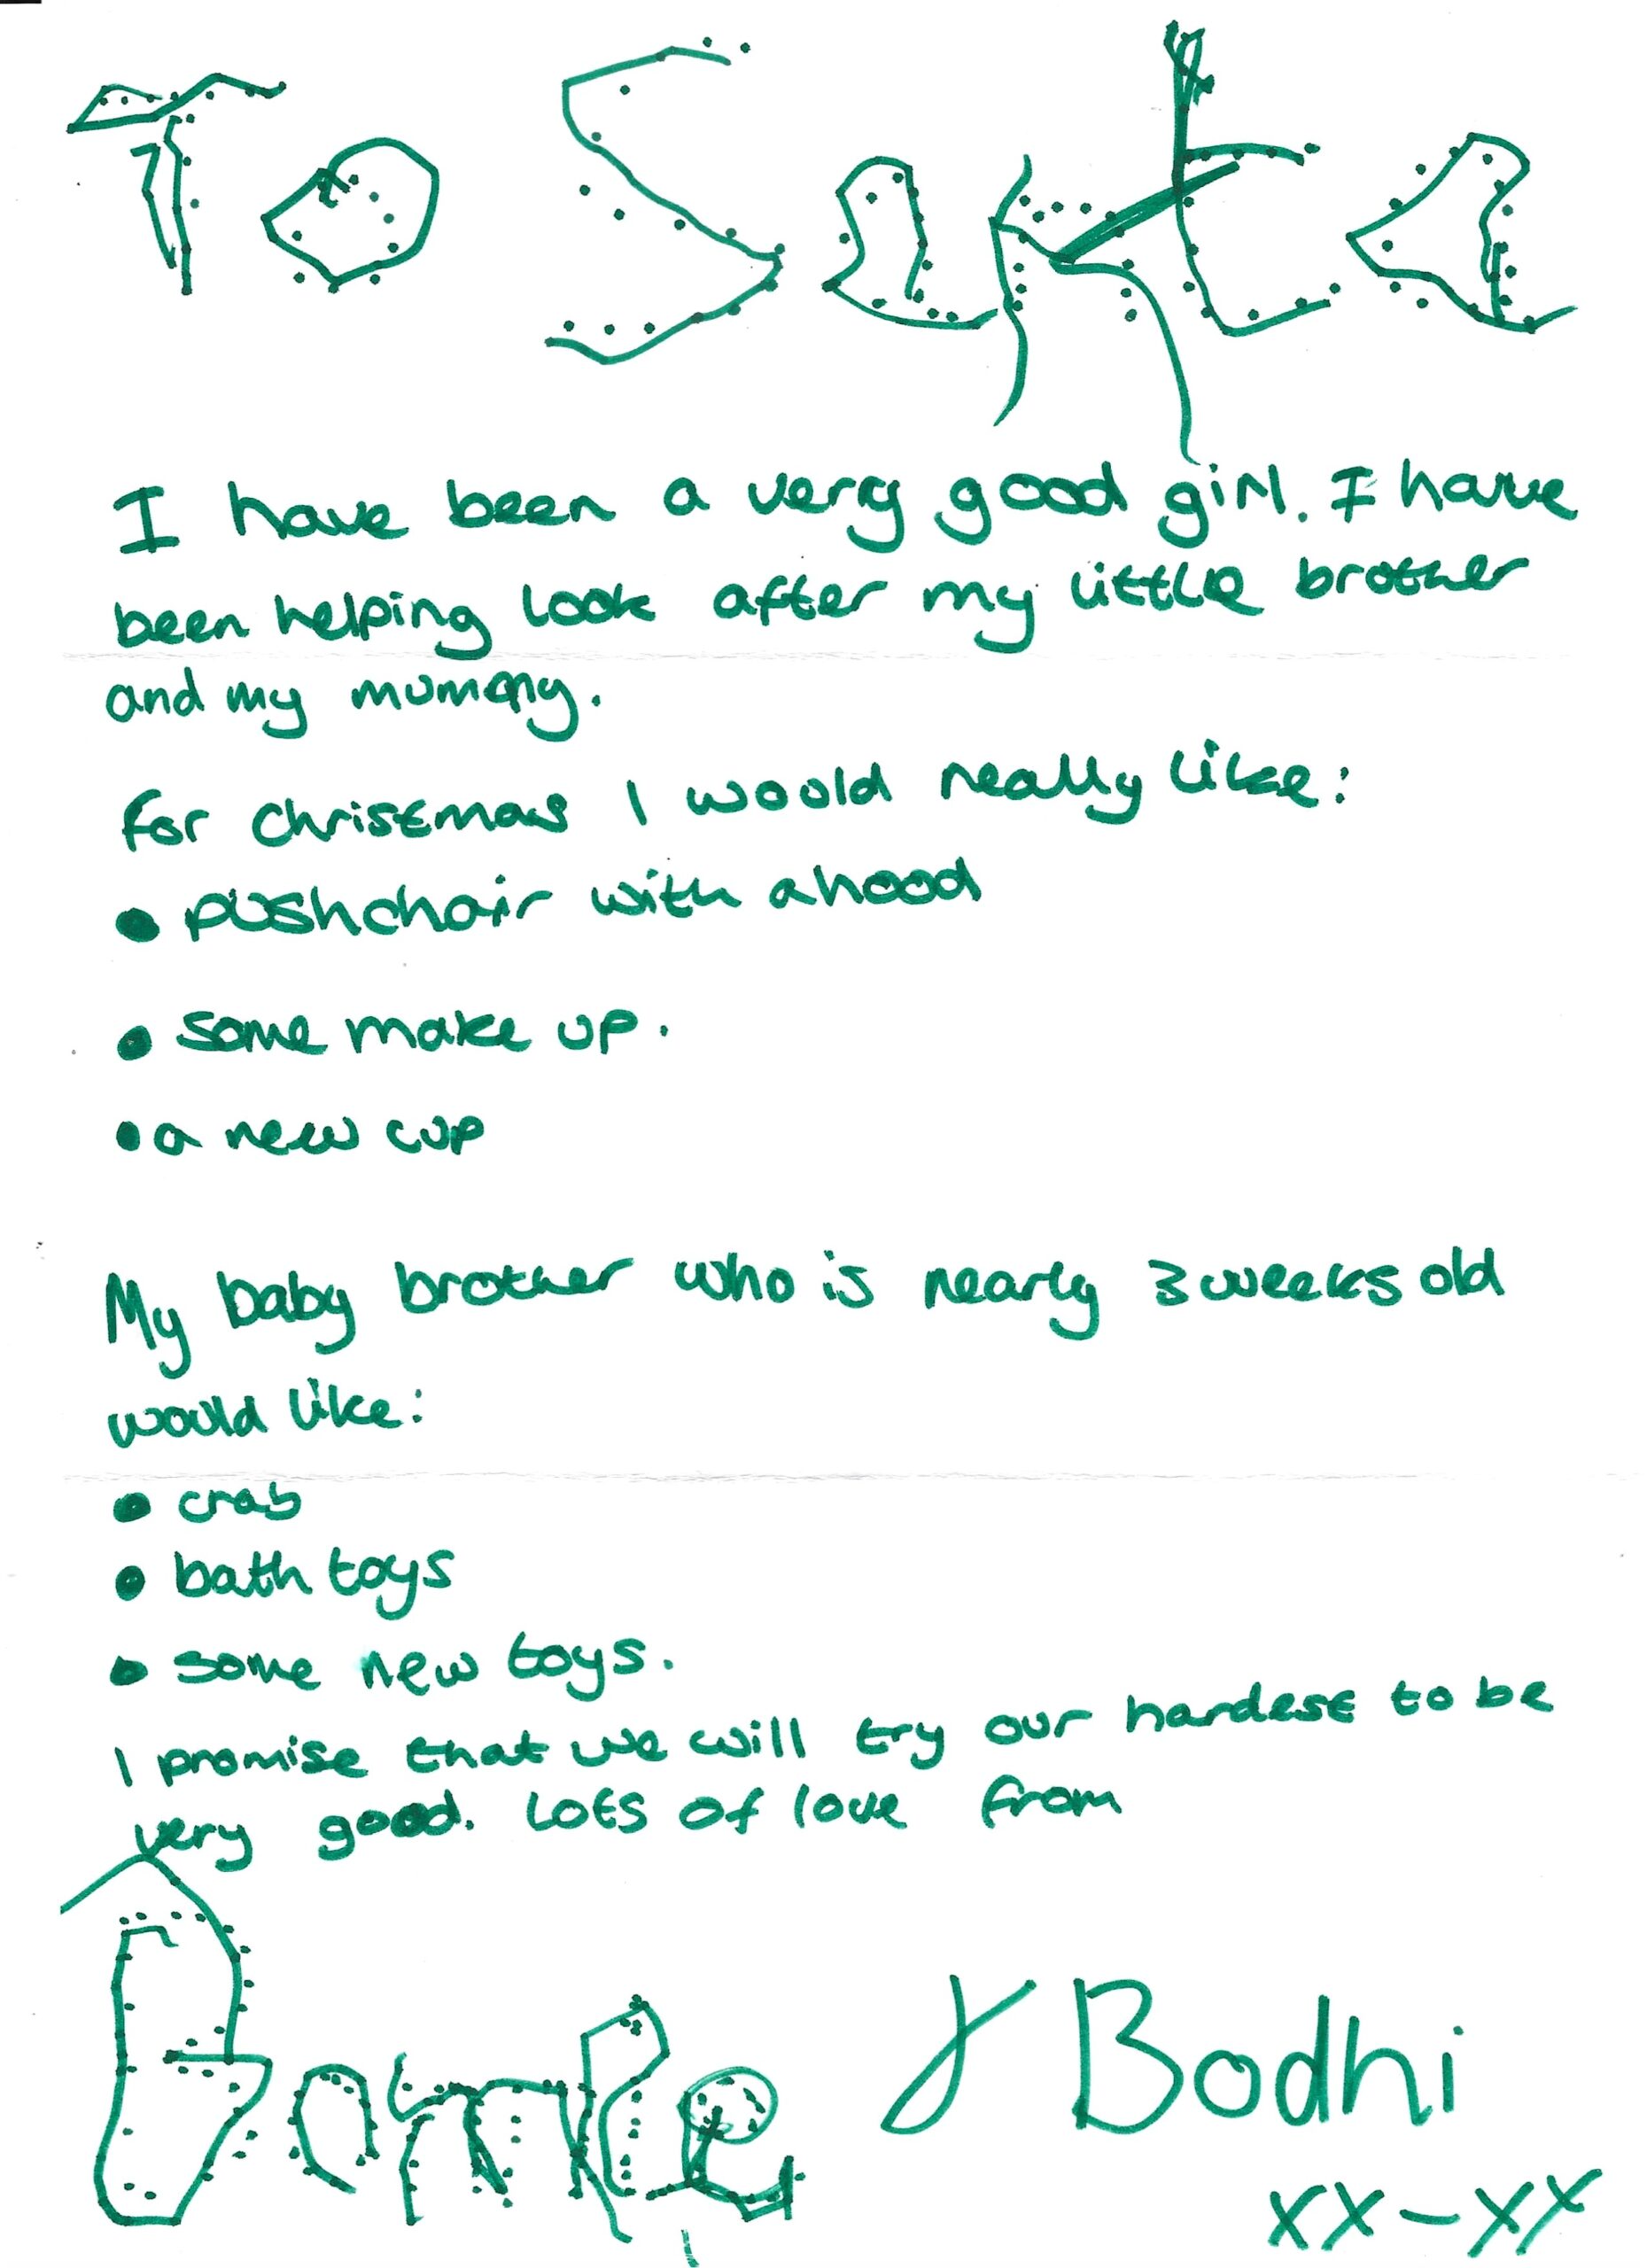 To Santa
I have been a very good girl. I have
been helping look after my little brother
and my mummy.
For christmas I would really like:
• pushchair with a hood
• some make up.
• a new cup
My baby brother who is nearly 3 weeks old
would like:
• crab
• bath toys
• some new toys.
I promise that we will try our hardest to be
very good. Lots of love from
Bonnie & Bodhi
xx - xx